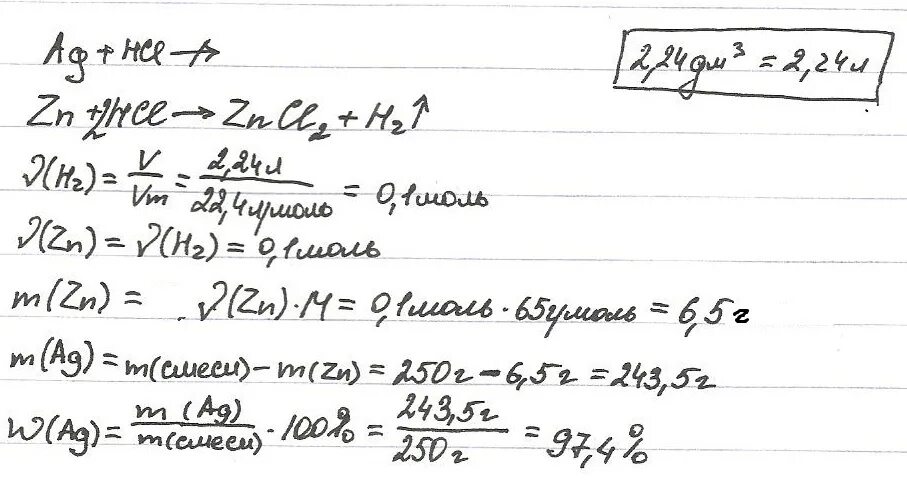 Ag + HCl ↛
2,24 дм³ = 2,24 л
Zn + 2HCl → ZnCl₂ + H₂↑
ν(H₂) = V/Vm = 2,24 л/22,4 л/моль = 0,1 моль
ν(Zn) = ν(H₂) = 0,1 моль
m(Zn) = ν(Zn)·M = 0,1 моль · 65 г/моль = 6,5 г
m(Ag) = m(смеси) – m(Zn) = 250 г – 6,5 г = 243,5 г
W(Ag) = m(Ag)/m(смеси) · 100% = 243,5 г/250 г = 97,4%